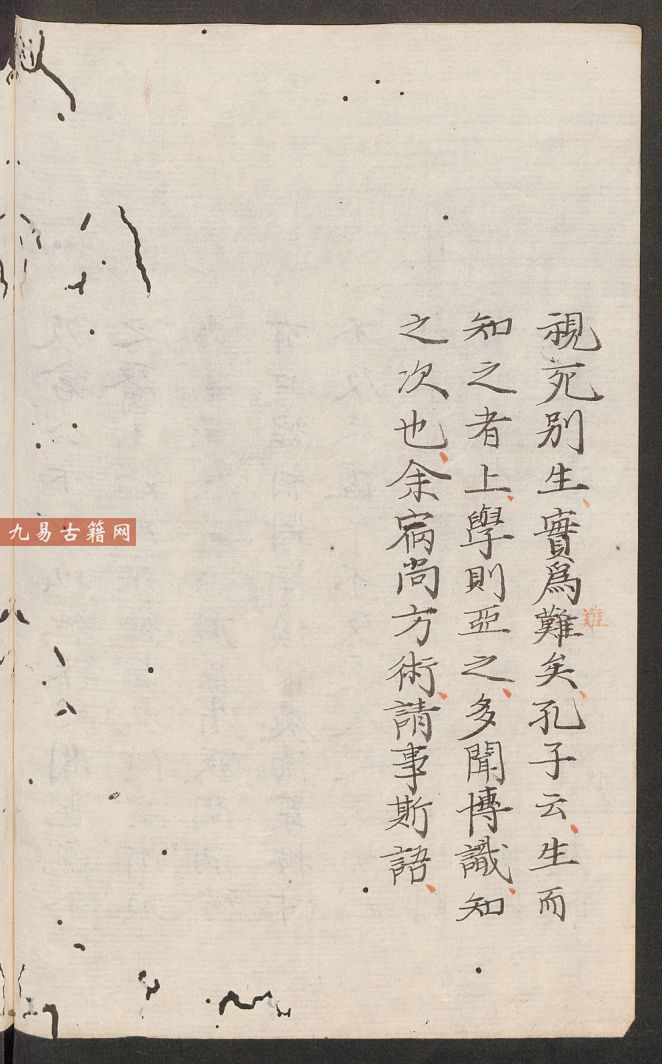 視死別生實爲難矣孔子云生而
難
知之者上學則亞之多聞博識知
之次也余宿尚方術請事斯語
九易古籍网